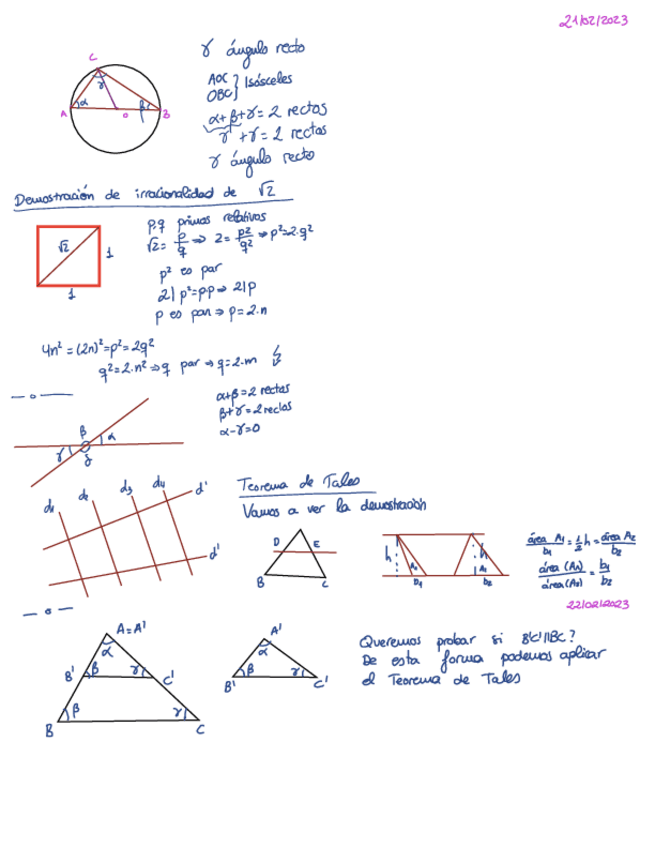 21/02/2023
C
γ
A
α
O
β
B
γ ángulo recto
AOC
OBC } Isósceles
α+β+γ=2 rectos
γ+γ=2 rectos
γ ángulo recto
Demostración de irracionalidad de √2
√2
1
1
p,q primos relativos
√2=p/q ⇒ 2=p²/q² ⇒ p²=2·q²
p² es par
2|p²=p·p ⇒ 2|p
p es par ⇒ p=2·n
4n²=(2n)²=p²=2q²
q²=2·n² ⇒ q par ⇒ q=2·m
α+β=2 rectos
β+γ=2 rectos
α-γ=0
β
α
γ
δ
d₁ d₂ d₃ d₄ d'
d'
Teorema de Tales
Vamos a ver la demostración
D E
B C
h
A₁
b₁
h
A₂
b₂
área A₁/b₁ = 1/2 h = área A₂/b₂
área (A₁)/área (A₂) = b₁/b₂
22/02/2023
A=A'
α
B' β γ C'
B β γ C
A'
α
B' β γ C'
Queremos probar si B'C'||BC?
De esta forma podemos aplicar
el Teorema de Tales